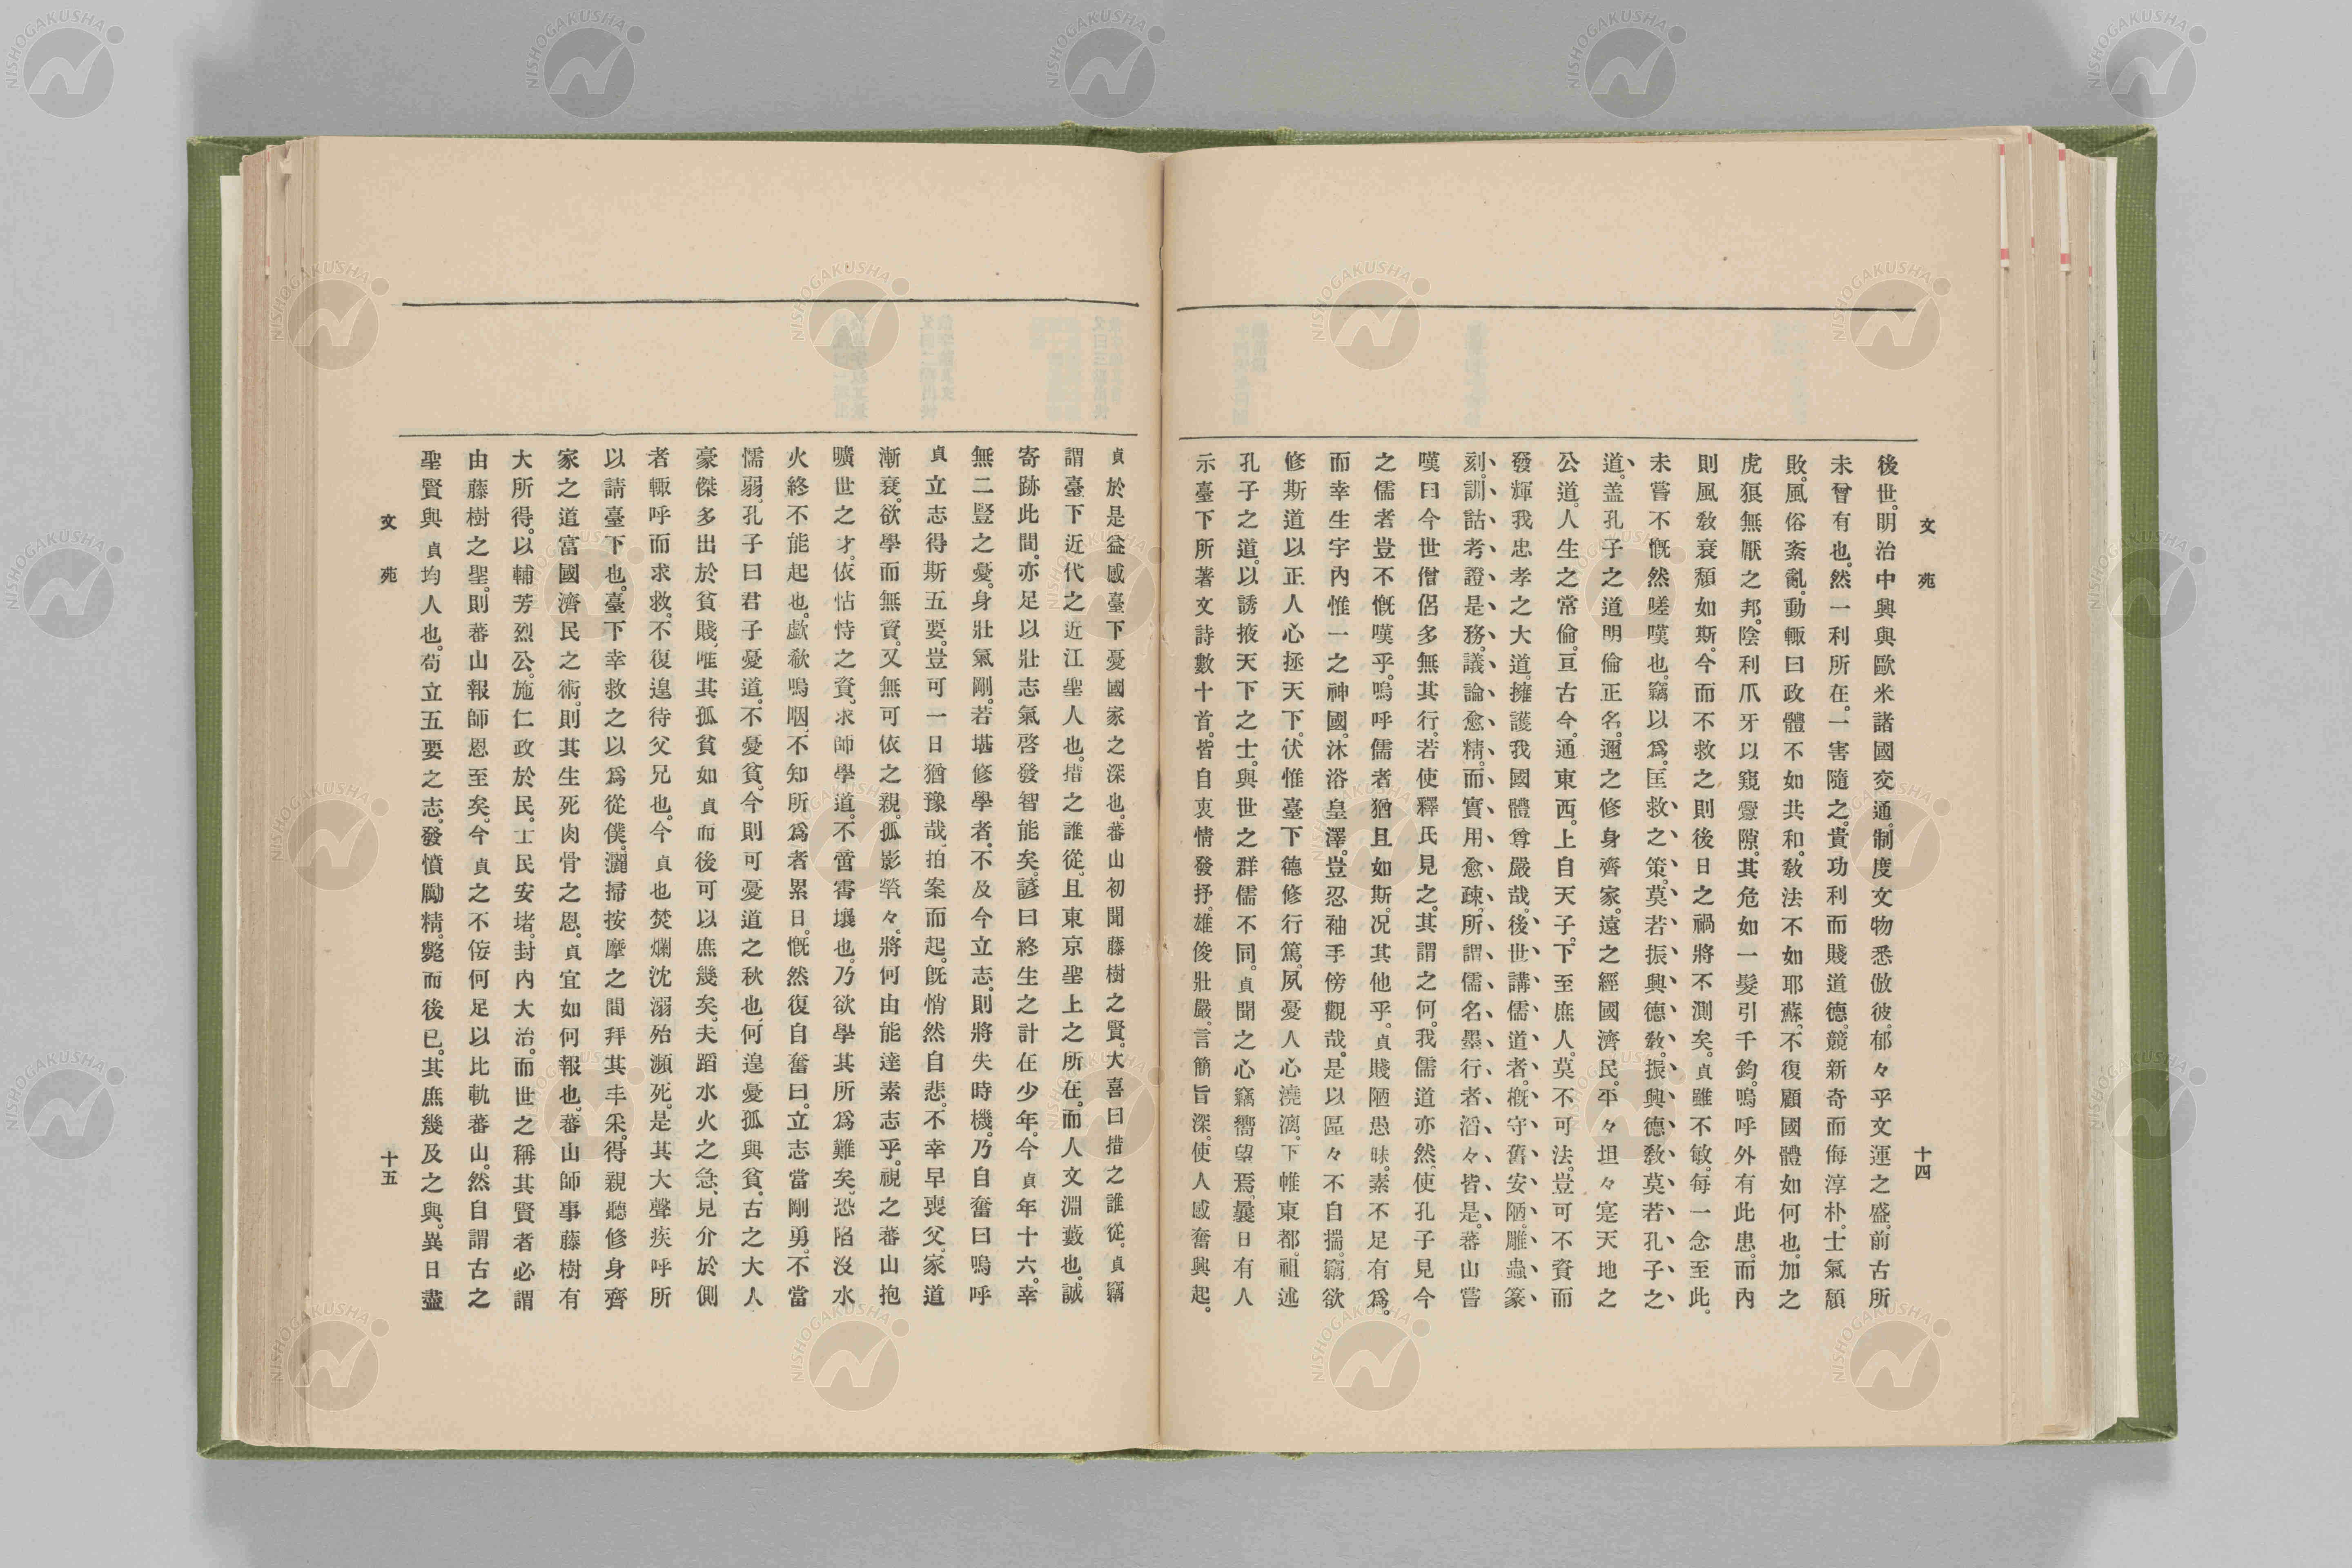 文苑
十四
後世。明治中興與歐米諸國交通。制度文物悉倣彼。郁々乎文運之盛。前古所
未曾有也。然一利所在。一害隨之。貴功利而賤道德。競新奇而侮淳朴。士氣頽
敗。風俗紊亂。動輙曰政體不如共和。敎法不如耶蘇。不復顧國體如何也。加之
虎狼無厭之邦。陰利爪牙以窺釁隙。其危如一髮引千鈞。嗚呼外有此患。而內
則風敎衰頽如斯。今而不救之則後日之禍將不測矣。貞雖不敏。每一念至此。
未嘗不慨然嗟嘆也。竊以爲。匡救之策。莫若振興德敎。振興德敎莫若孔子之
道。盖孔子之道明倫正名。邇之修身齊家。遠之經國濟民。平々坦々寔天地之
公道。人生之常倫。亘古今。通東西。上自天子。下至庶人。莫不可法。豈可不資而
發輝我忠孝之大道。擁護我國體尊嚴哉。後世講儒道者。槪守舊安陋。雕蟲篆
刻。訓詁考證是務。議論愈精。而實用愈疎。所謂儒名墨行者滔々皆是。蕃山嘗
嘆曰今世僧侶多無其行。若使釋氏見之。其謂之何。我儒道亦然。使孔子見今
之儒者豈不慨嘆乎。嗚呼儒者猶且如斯。况其他乎。貞賤陋愚昧。素不足有爲。
而幸生宇內惟一之神國。沐浴皇澤。豈忍袖手傍觀哉。是以區々不自揣。竊欲
修斯道以正人心拯天下。伏惟臺下德修行篤。夙憂人心澆漓。下帷東都。祖述
孔子之道。以誘掖天下之士。與世之群儒不同。貞聞之心竊嚮望焉。曩日有人
示臺下所著文詩數十首。皆自衷情發抒。雄俊壯嚴。言簡旨深。使人感奮興起。
貞於是益感臺下憂國家之深也。蕃山初聞藤樹之賢。大喜曰措之誰從。貞竊
謂臺下近代之近江聖人也。措之誰從。且東京聖上之所在。而人文淵藪也。誠
寄跡此間。亦足以壯志氣啓發智能矣。諺曰終生之計在少年。今貞年十六。幸
無二豎之憂。身壯氣剛。若堪修學者。不及今立志。則將失時機。乃自奮曰嗚呼
貞立志得斯五要。豈可一日猶豫哉。拍案而起。旣悄然自悲。不幸早喪父。家道
漸衰。欲學而無資。又無可依之親。孤影煢々。將何由能達素志乎。視之蕃山抱
曠世之才。依怙恃之資。求師學道。不啻霄壤也。乃欲學其所爲難矣。恐陷沒水
火終不能起也。歔欷嗚咽、不知所爲者累日。慨然復自奮曰。立志當剛勇。不當
懦弱。孔子曰君子憂道。不憂貧。今則可憂道之秋也、何遑憂孤與貧。古之大人
豪傑多出於貧賤、唯其孤貧如貞而後可以庶幾矣。夫蹈水火之急、見介於側
者輙呼而求救。不復遑待父兄也。今貞也焚爛沈溺殆瀕死。是其大聲疾呼所
以請臺下也。臺下幸救之以爲從僕。灑掃按摩之間拜其丰采。得親聽修身齊
家之道富國濟民之術。則其生死肉骨之恩。貞宜如何報也。蕃山師事藤樹有
大所得。以輔芳烈公。施仁政於民。士民安堵。封內大治。而世之稱其賢者必謂
由藤樹之聖。則蕃山報師恩至矣。今貞之不侫何足以比軌蕃山。然自謂古之
聖賢與貞均人也。苟立五要之志。發憤勵精。斃而後已。其庶幾及之與。異日盡
文苑
十五